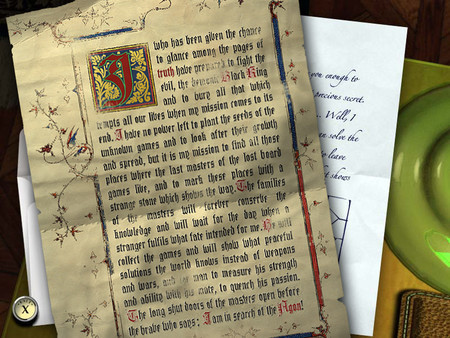 I who has been given the chance
to glance among the pages of
truth have prepared to fight the
evil, the demonic Black King
and to bury all that which
tempts all our likes when my mission comes to its
end. I have no power left to plant the seeds of the
unknown games and to look after their growth
and spread, but it is my mission to find all those
places where the last masters of the lost board
games live, and to mark these places with a
strange stone which shows the way. The families
of the masters will forever conserve the
knowledge and will wait for the day when a
stranger fulfils what fate intended for me. He will
collect the games and will show what peaceful
solutions the world knows instead of weapons
and wars, and man to measure his strength
and ability with his mate, to quench his passion.
The long shut doors of the masters open before
the brave who says: I am in search of the Agon!
you enough to
precious secret.
... Well, I
can solve the
to leave
t shows
X